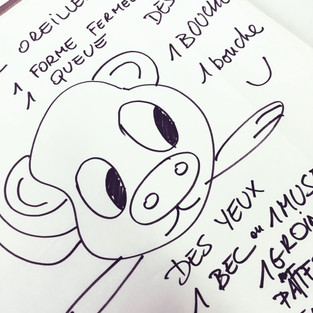 OREILLE
1 FORME FERMÉE
1 QUEUE
DES
1 BOUCH
1 bouche
DES YEUX
1 BEC ou 1 MUS
1 GROIN